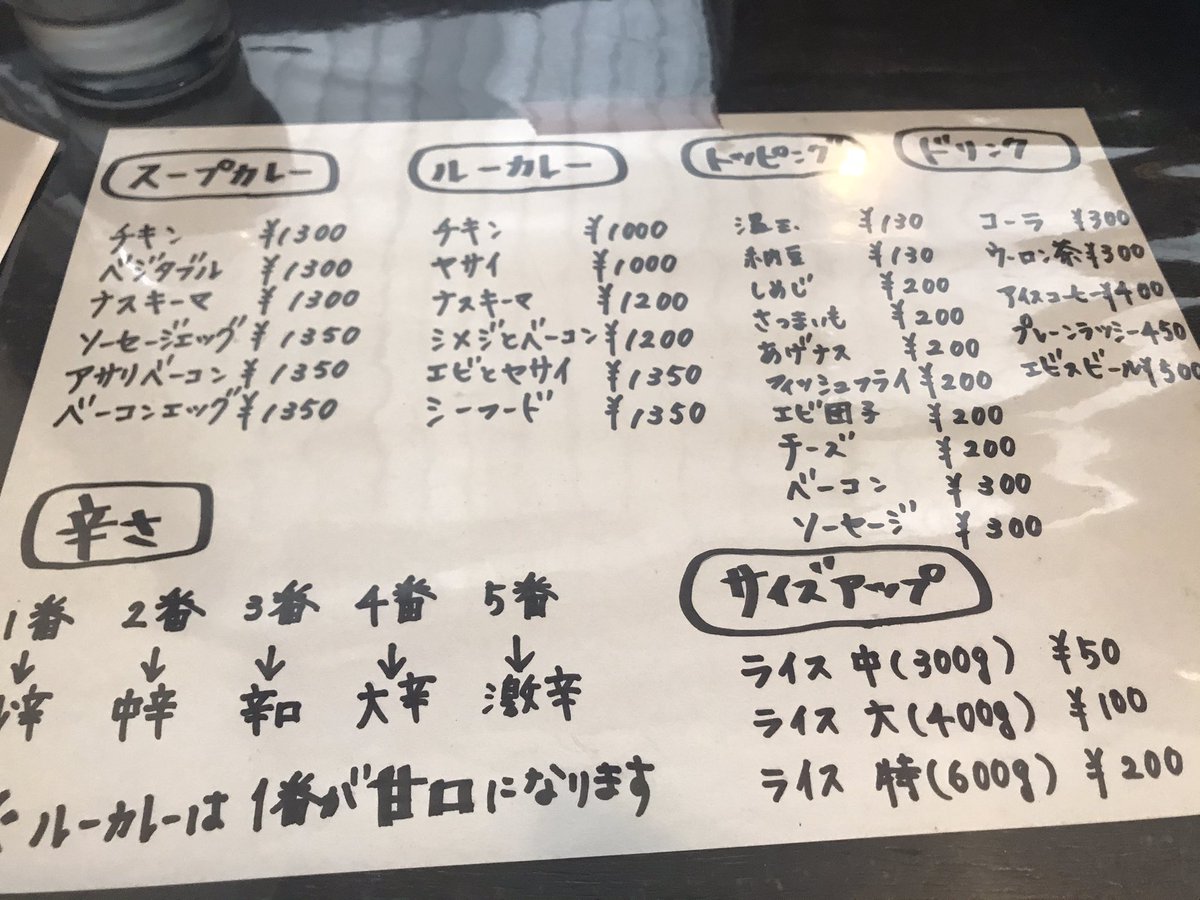 スープカレー
チキン ¥1300
ベジタブル ¥1300
ナスキーマ ¥1300
ソーセージエッグ ¥1350
アサリベーコン ¥1350
ベーコンエッグ ¥1350
ルーカレー
チキン ¥1000
ヤサイ ¥1000
ナスキーマ ¥1200
シメジとベーコン ¥1200
エビとヤサイ ¥1350
シーフード ¥1350
トッピング
温玉 ¥130
納豆 ¥130
しめじ ¥200
さつまいも ¥200
あげナス ¥200
フィッシュフライ ¥200
エビ団子 ¥200
チーズ ¥200
ベーコン ¥300
ソーセージ ¥300
ドリンク
コーラ ¥300
ウーロン茶 ¥300
アイスコーヒー ¥400
プレーンラッシー 450
エビスビール ¥500
辛さ
1番 2番 3番 4番 5番
↓ ↓ ↓ ↓ ↓
小辛 中辛 辛口 大辛 激辛
ルーカレーは 1番が甘口になります
サイズアップ
ライス 中(300g) ¥50
ライス 大(400g) ¥100
ライス 特(600g) ¥200